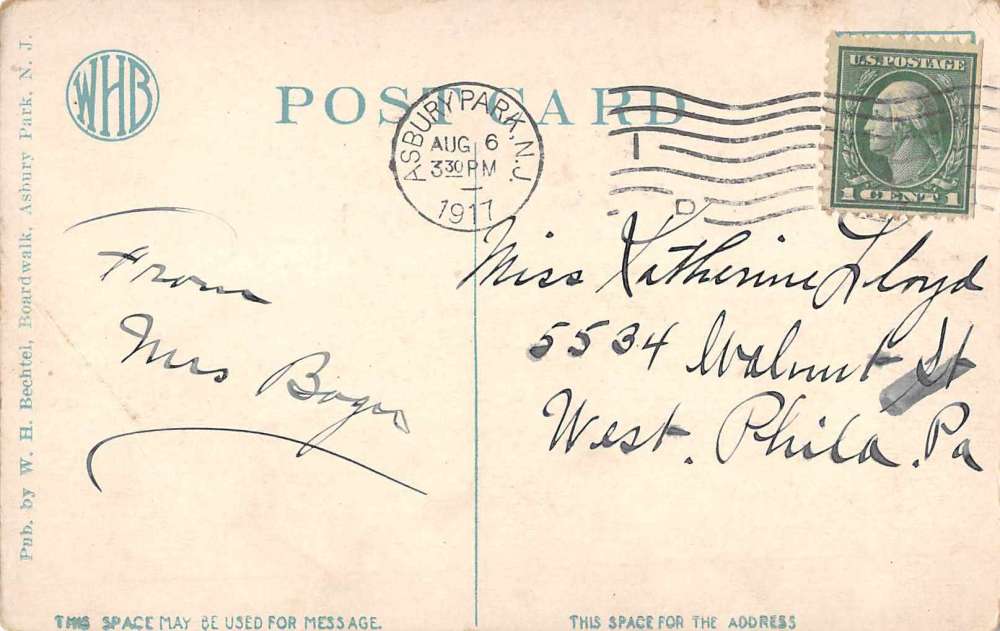 WHB
POST CARD
Pub. by W. H. Bechtel, Boardwalk, Asbury Park, N. J.
ASBURY PARK, N.J.
AUG 6
3 30 PM
1917
1
D
U.S. POSTAGE
1 CENT 1
From
Mrs
Miss Katherine Lloyd
5534 Walnut St
West. Phila. Pa
THIS SPACE MAY BE USED FOR MESSAGE.
THIS SPACE FOR THE ADDRESS